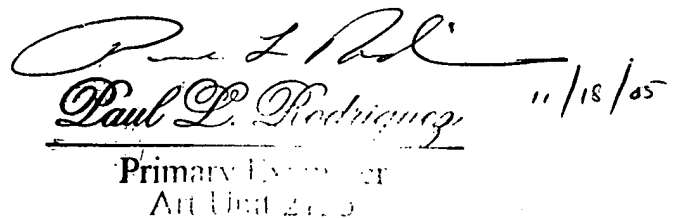 Paul L. Rodriguez
11/18/05
Primary
Art Unit